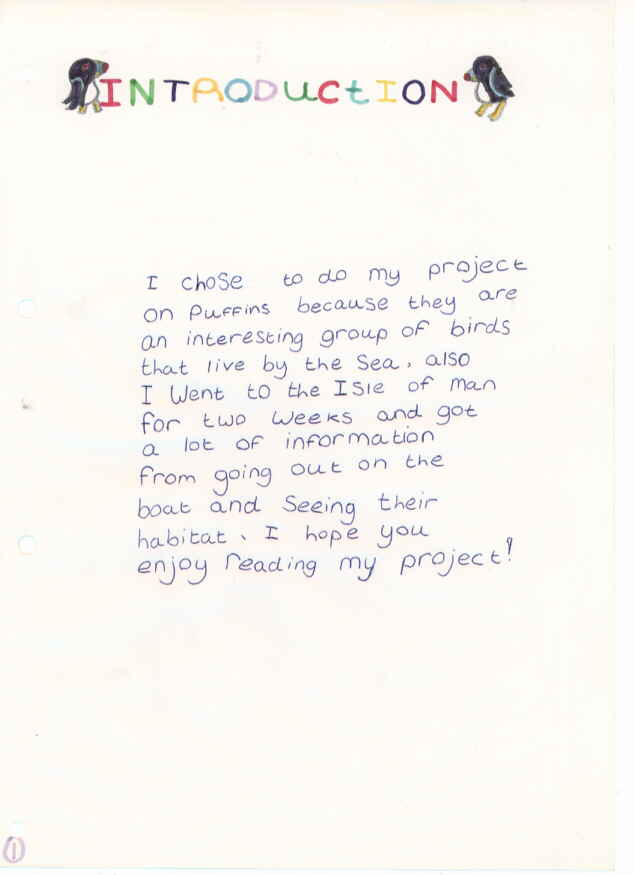 INTRODUCtION
I chose to do my project
on Puffins because they are
an interesting group of birds
that live by the Sea, also
I Went to the ISle of man
for two Weeks and got
a lot of information
from going out on the
boat and Seeing their
habitat, I hope you
enjoy reading my project!
1